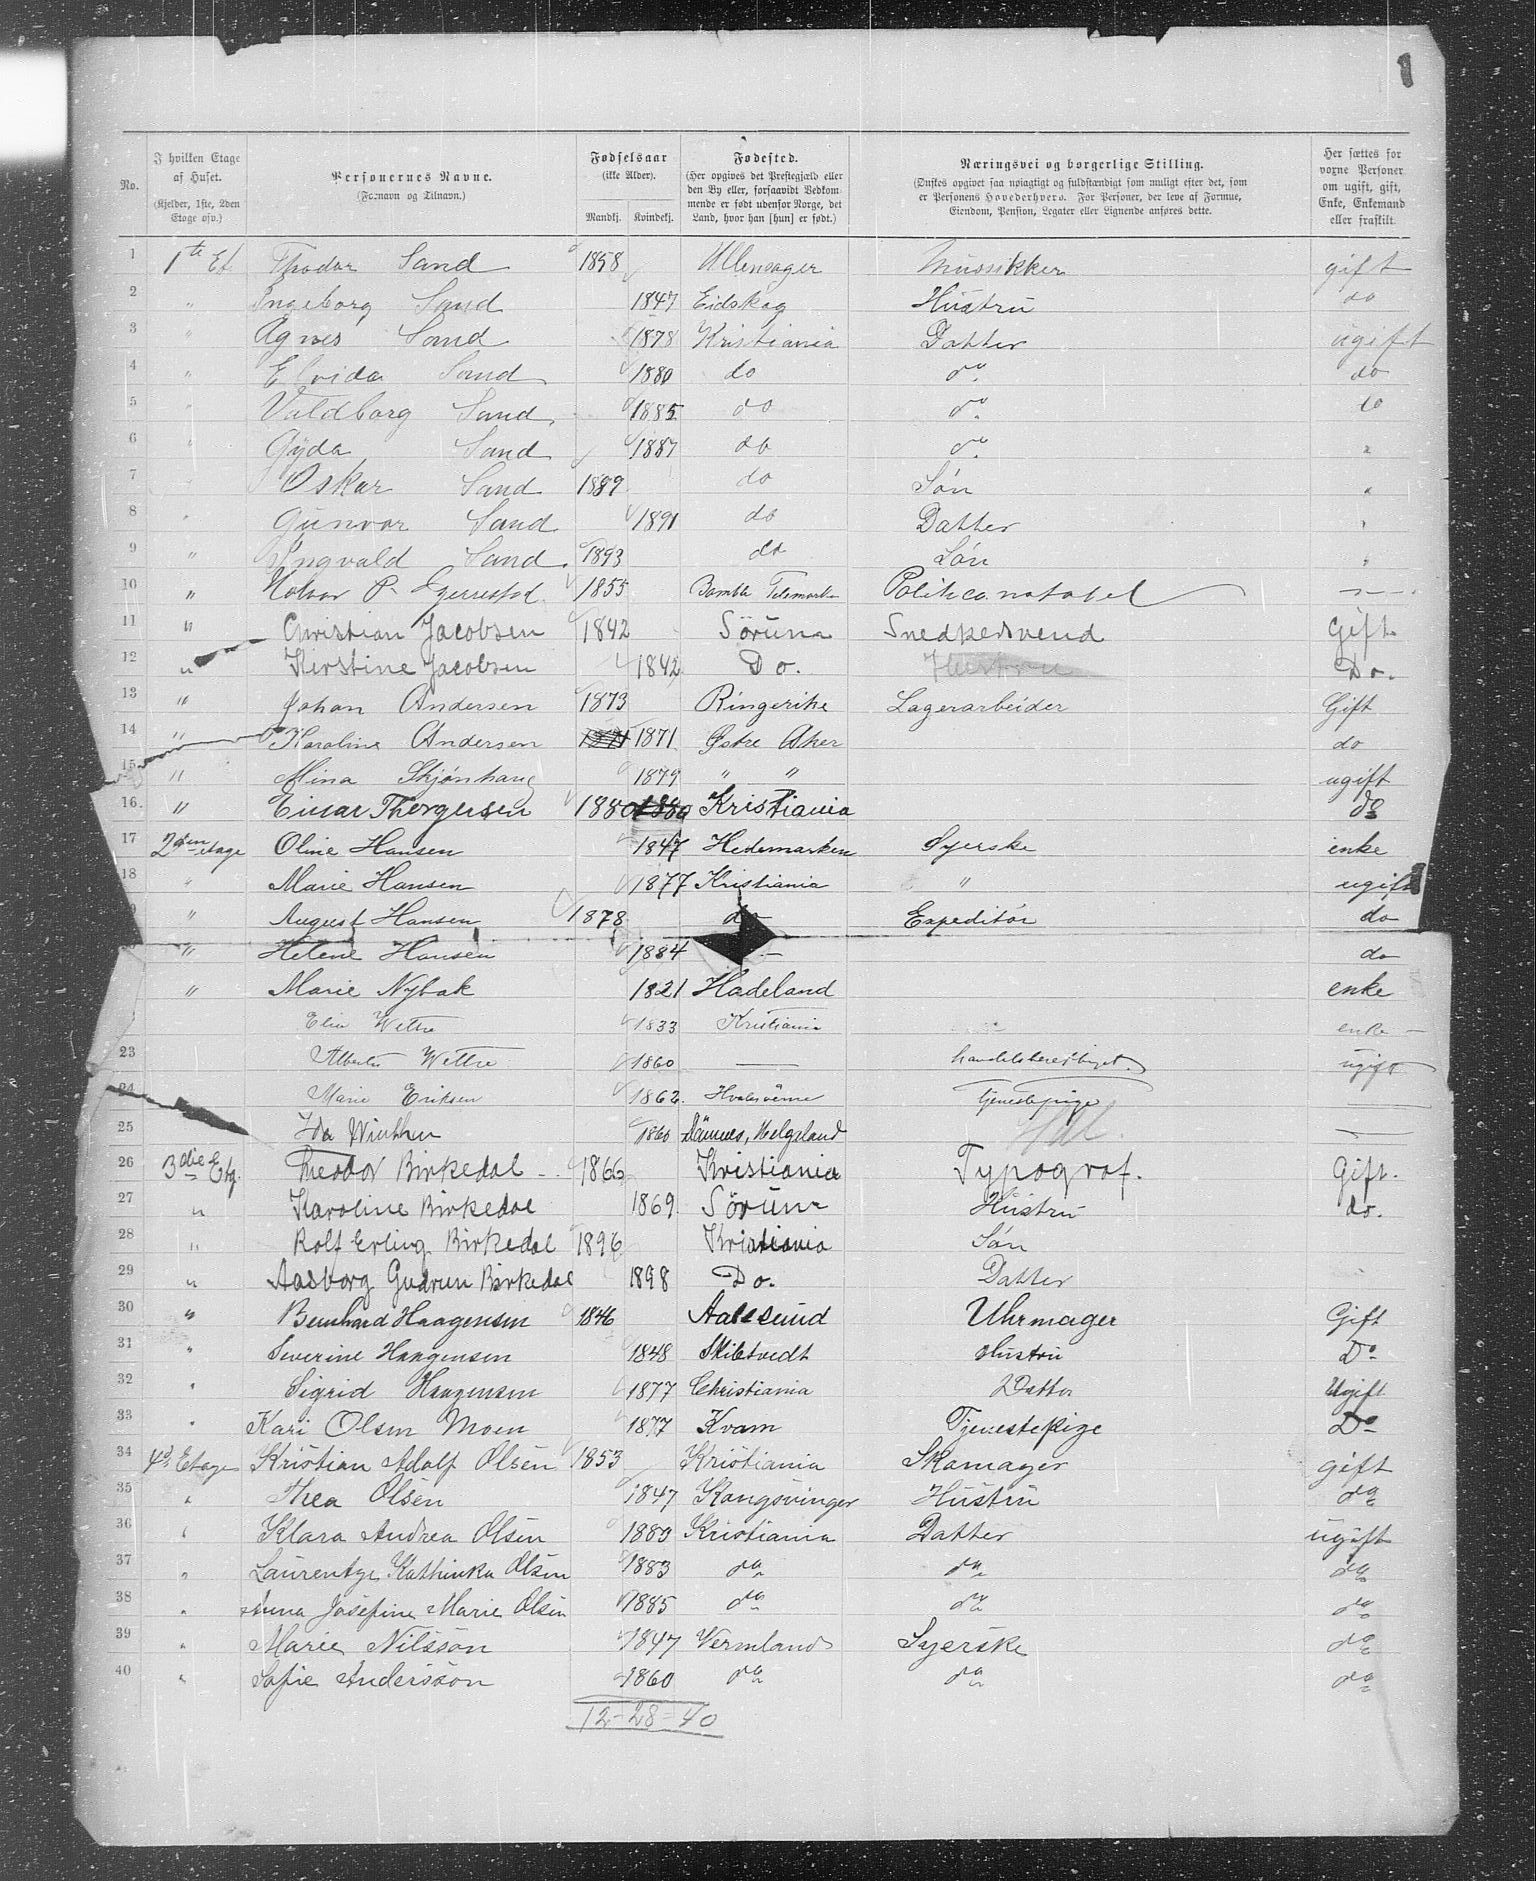 1
No. I hvilken Etage af Huset. (Kjelder, 1ste, 2den Etage osv.) Personernes Navne. (Fornavn og Tilnavn.) Fødselsaar (ikke Alder). Mandkj. Kvindekj. Fødested. (Her opgives det Prestegjæld eller den By eller, forsaavidt Vedkommende er født udenfor Norge, det Land, hvor han [hun] er født.) Næringsvei og borgerlige Stilling. (Ønskes opgivet saa nøiagtigt og fuldstændigt som muligt efter det, som er Personens Hovederhverv. For Personer, der leve af Formue, Eiendom, Pension, Legater eller Lignende anføres dette. Her sættes for voxne Personer om ugift, gift, Enke, Enkemand eller fraskilt.
1 1ste Et. Thodor Sand 1858 Ullensager Mussikker gift
2 " Ingeborg Sand 1847 Eidskog Hustru do
3 " Agnes Sand 1878 Kristiania Datter ugift
4 " Elvida Sand 1880 do do do
5 " Valdborg Sand 1885 do do do
6 " Gyda Sand 1887 do do "
7 " Oskar Sand 1889 do Søn "
8 " Gunvor Sand 1891 do Datter "
9 " Yngvald Sand 1893 do Søn "
10 " 1855 Bamble Telemarken Politiconstabel —
11 " Christian Jacobsen 1842 Sörum Snedkersvend Gift
12 " Kerstine Jacobsen 1842 Do. Hustru Do.
13 " Johan Andersen 1873 Ringerike Lagerarbeider Gift
14 " Karoline Andersen 1871 1871 Østre Aker do
15 " Mina Skjønhaug 1879 " " ugift
16. " Einar Thorgersen 1880 1880 Kristiania do
17 2den etage Oline Hansen 1847 Hedemarken Syerske enke
18 " Marie Hansen 1877 Kristiania " ugift
9 " August Hansen 1878 do Expeditør do
" Helene Hansen 1884 — do
" Marie Nybak 1821 Hadeland enke
Elin Wettre 1833 Kristiania enke —
23 Alberta Wettre 1860 — handelsberettiget. ugift
24 Marie Eriksen 1862. Tjenestepige —
25 Ida Winther 1860 Dönnes, Helgeland —
26 3die Etg. Theodor Birkedal 1866 Kristiania Typograf. Gift.
27 " Karoline Birkedal 1869. Sörum Hustru do.
28 " Rolf Erling Birkedal 1896 Kristiania Søn
29 " Aasborg Gudrun Birkedal 1898 Do. Datter
30 " Bernhard Haagensen 1846 Aalesund Uhrmager Gift
31 " Severine Haagensen 1848 Skibtvedt Hustru Do
32 " Sigrid Haagensen 1877 Christiania Datter Ugift
33 " Kari Olsen Moen 1877 Kvam Tjenestepige Do
34 4de Etage Kristian Adolf Olsen 1853 Kristiania Skomager gift
35 " Thea Olsen 1847 Kongsvinger Hustru do
36 " Klara Andrea Olsen 1889 Kristiania Datter ugift
37 " Laurentze Kathinka Olsen 1883 do do do
38 " Anna Josefine Marie Olsen 1885 do do do
39 " Marie Nilsson 1847 Vermland Syerske do
40 " Sofie Andersson 1860 do do do
12 - 28 = 40